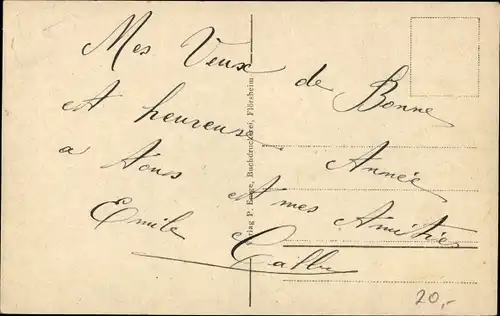 Mes Veux de Bonne
Et heureuse Année
a tous Et mes Amitiés
Emile
Verlag P. Buchdruckerei, Flörsheim
20,-